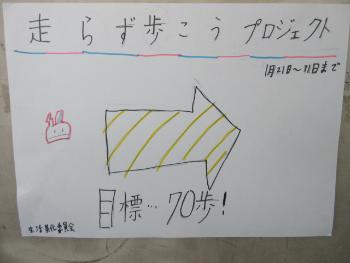 走らず歩こうプロジェクト
1月21日～31日まで
目標…70歩!
生活美化委員会